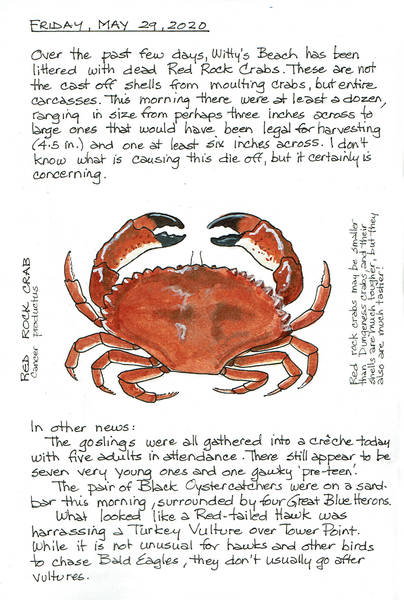 FRIDAY, MAY 29, 2020
Over the past few days, Witty's Beach has been
littered with dead Red Rock Crabs. These are not
the cast off shells from moulting crabs, but entire
carcasses. This morning there were at least a dozen,
ranging in size from perhaps three inches across to
large ones that would have been legal for harvesting
(4.5 in.) and one at least six inches across. I don't
know what is causing this die off, but it certainly is
concerning.
RED ROCK CRAB
Cancer productus
Red rock crabs may be smaller
than Dungeness crabs, and their
shells are much tougher, but they
also are much tastier!
In other news:
The goslings were all gathered into a crèche today
with five adults in attendance. There still appear to be
seven very young ones and one gawky 'pre-teen'.
The pair of Black Oystercatchers were on a sand-
bar this morning, surrounded by four Great Blue Herons.
What looked like a Red-tailed Hawk was
harrassing a Turkey Vulture over Tower Point.
While it is not unusual for hawks and other birds
to chase Bald Eagles, they don't usually go after
vultures.